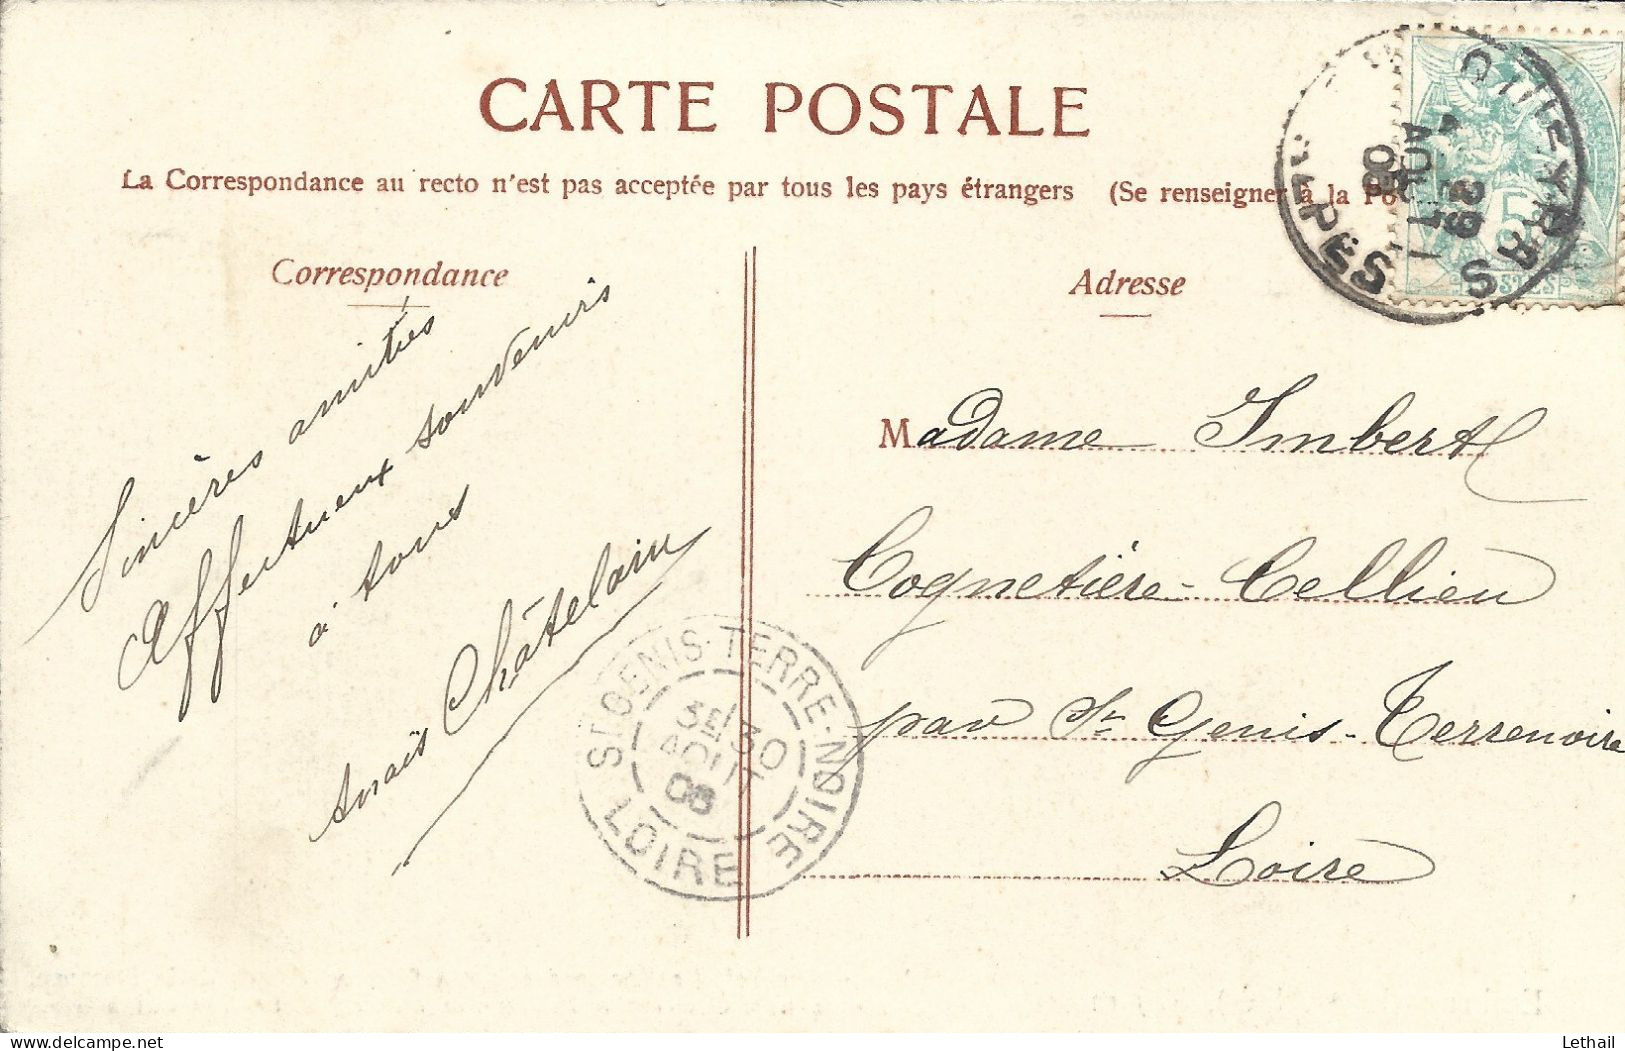 CARTE POSTALE
La Correspondance au recto n'est pas acceptée par tous les pays étrangers (Se renseigner à la Po
Correspondance
Sincères amitiés
Affectueux souvenirs
à tous
Anaïs Châtelain
Adresse
Madame Imbert
Cognetière-Cellieu
par St Genis-Terrenoire
Loire
ST GENIS-TERRE-NOIRE
3E 30
AOUT
08
LOIRE
QUEYRAS
4 29
AOUT
08
ALPES
5
Lethail